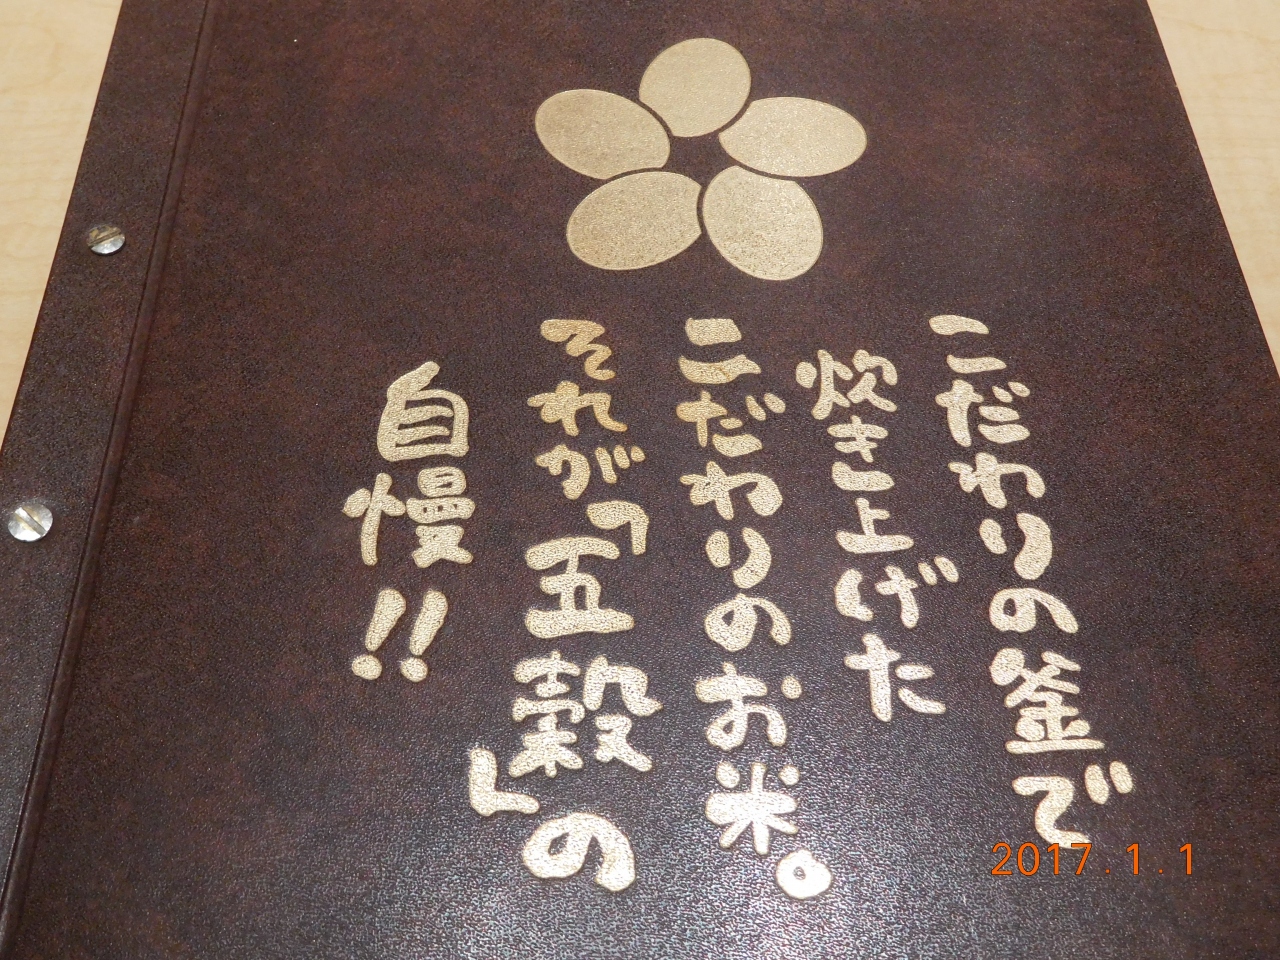 こだわりの釜で
炊き上げた
こだわりのお米。
それが「五穀」の
自慢!!
2017.1.1